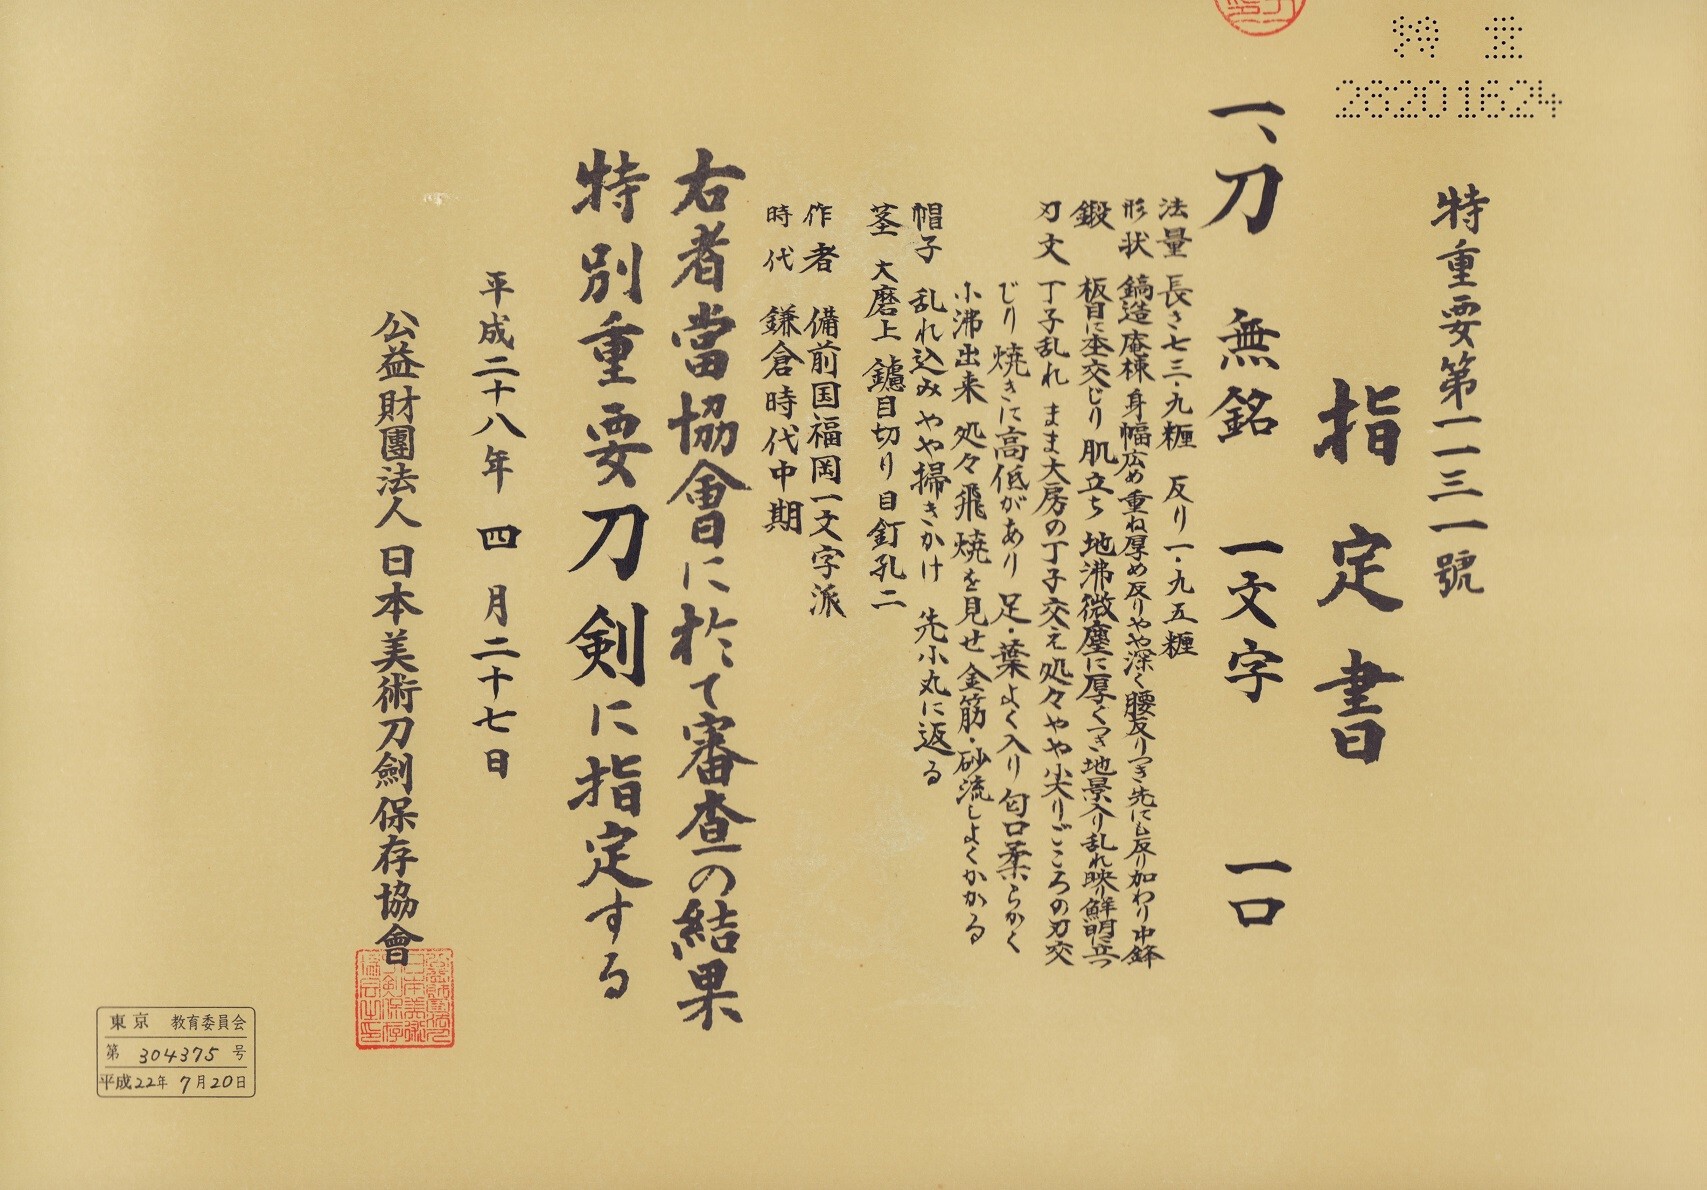 特重
28201624
特重要第一一三一號
指定書
一、刀 無銘 一文字 一口
法量 長さ七三・九糎 反り一・九五糎
形状 鎬造 庵棟 身幅広め 重ね厚め 反りやや深く 腰反りつき 先にも反り加わり 中鋒
鍛 板目に杢交じり 肌立ち 地沸微塵に厚くつき 地景入り 乱れ映り鮮明に立つ
刃文 丁子乱れ まま大房の丁子交え 処々やや尖りごころの刃交
じり 焼きに高低があり 足・葉よく入り 匂口柔らかく
小沸出来 処々飛焼を見せ 金筋・砂流しよくかかる
帽子 乱れ込み やや掃きかけ 先小丸に返る
茎 大磨上 鑢目切り 目釘孔二
作者 備前国福岡一文字派
時代 鎌倉時代中期
右者當協會に於て審査の結果
特別重要刀剣に指定する
平成二十八年 四月二十七日
公益財團法人 日本美術刀劍保存協會
東京 教育委員会
第 304375 号
平成22年 7月20日